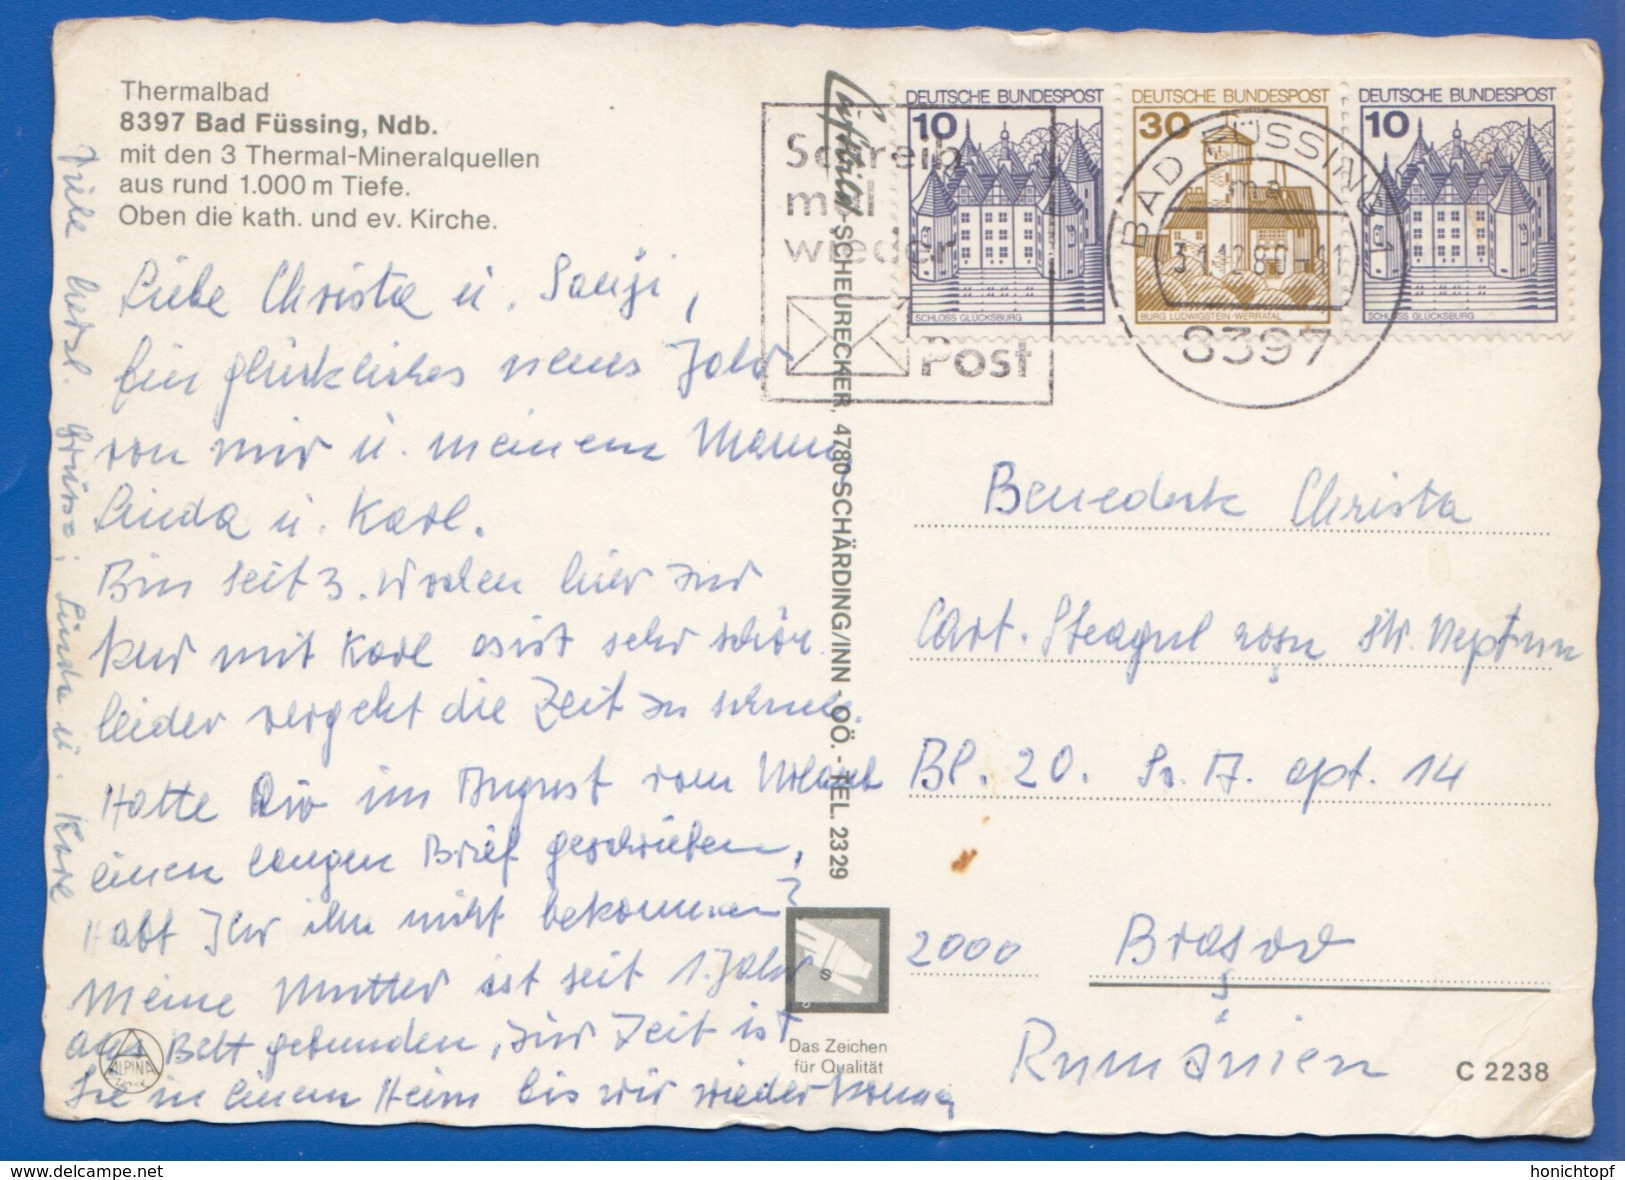 Thermalbad
8397 Bad Füssing, Ndb.
mit den 3 Thermal-Mineralquellen
aus rund 1.000 m Tiefe.
Oben die kath. und ev. Kirche.
Liebe Christa u. Sanyi,
Ein glückliches neues Jahr
von mir u. meinem Mann,
Linda u. Karl.
Bin seit 3. Wochen hier zur
Kur mit Karl es ist sehr schön
leider vergeht die Zeit zu schnell.
Hatte Dir im August vom Urlaub
einen langen Brief geschrieben,
Habt Ihr ihn nicht bekommen?
Meine Mutter ist seit 1. Jahr
ans Bett gebunden, zur Zeit ist
Sie in einem Heim bis wir wieder kommen
Viele herzl. Grüsse: Linda u. Karl
ALPINA
Druck
Luftbild SCHEURECKER, 4780 SCHÄRDING/INN - OÖ. - TEL. 23 29
Das Zeichen
für Qualität
Schreib
mal
wieder
Post
DEUTSCHE BUNDESPOST
10
SCHLOSS GLÜCKSBURG
DEUTSCHE BUNDESPOST
30
BURG LUDWIGSTEIN-WERRATAL
DEUTSCHE BUNDESPOST
10
SCHLOSS GLÜCKSBURG
BAD FÜSSING 1
ma
31.12.80-11
8397
Benedek Christa
Cart. Steagul roşu Str. Neptun
Bl. 20. Sc. A. apt. 14
2000 Braşov
Rumänien
C 2238
www.delcampe.net
honichtopf